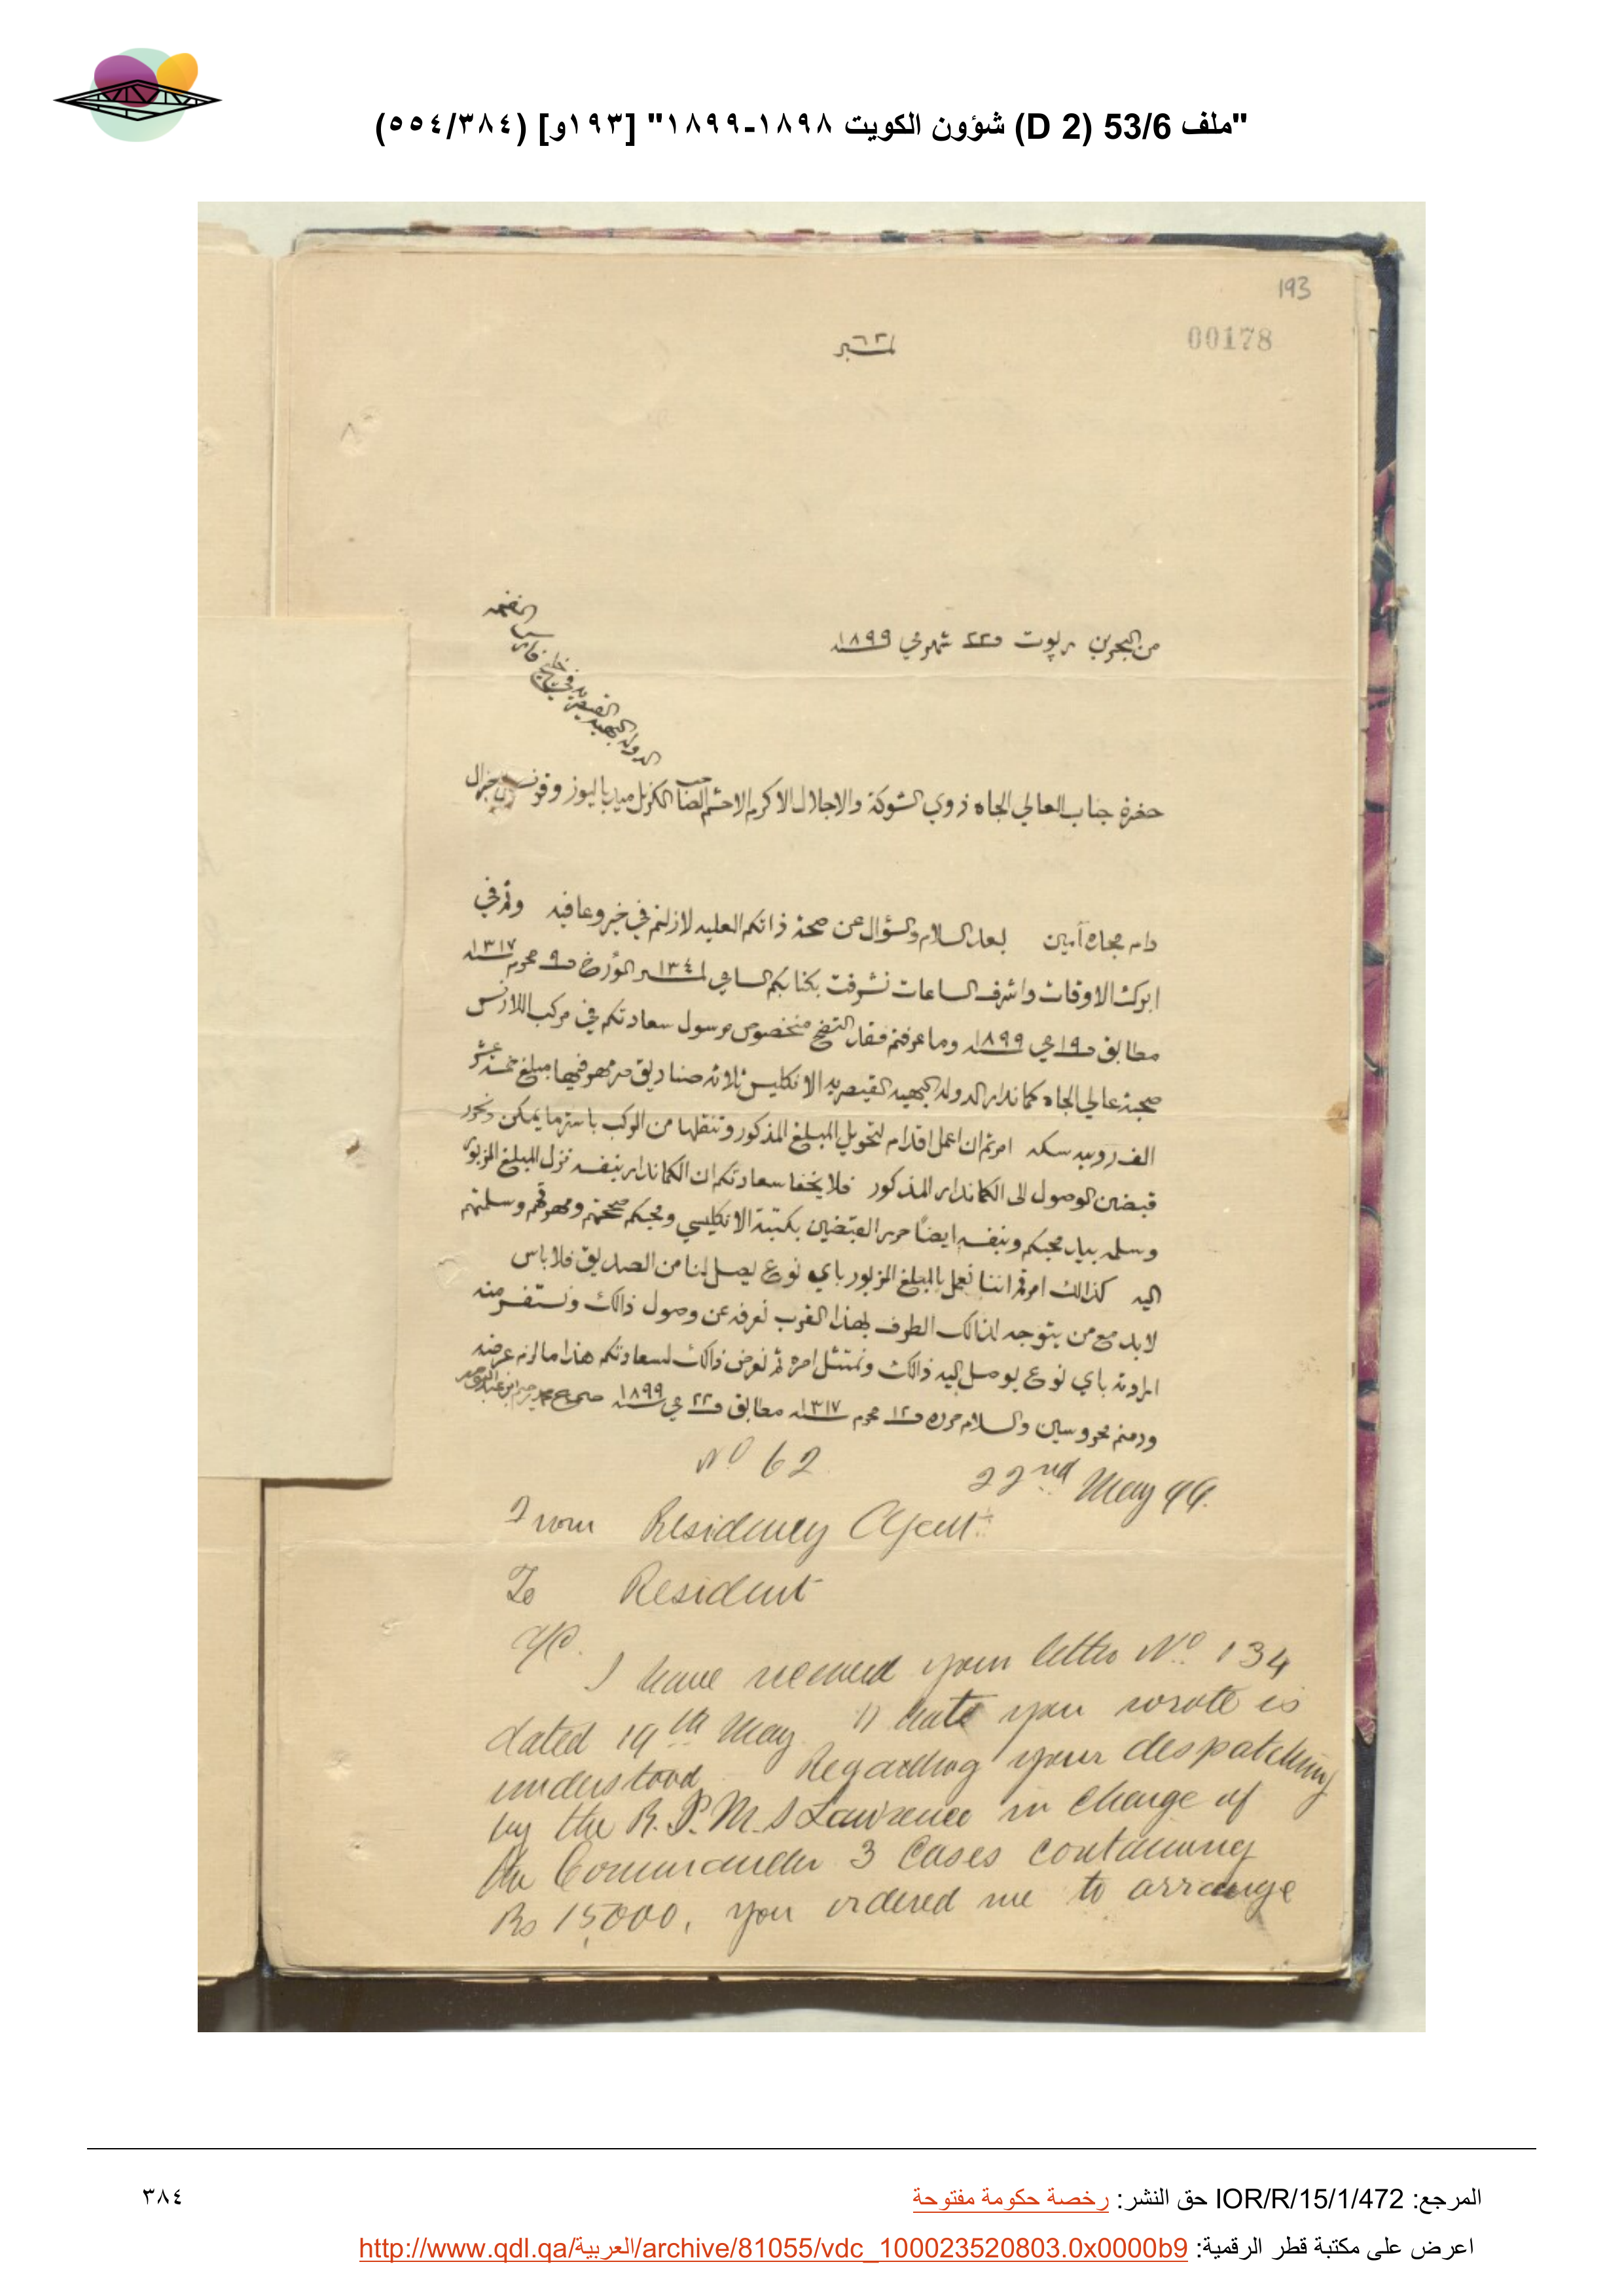 "ملف 53/6 (D 2) شؤون الكويت ١٨٩٨-١٨٩٩" [١٩٣و] (٥٥٤/٣٨٤)
193
00178
نمبر ٦٢
من البحرين ريپوت في ٢٢ شهر مي سنة ١٨٩٩
الدولة البهية القيصرية في خليج فارس المفخم
حضرة جناب العالي الجاه ذوي الشوكة والاجلال الاكرم الاحشم الصاحب الكرنل ميد باليوز وقونسل جنرال
دام مجاه آمين بعد السلام والسؤال عن صحة ذاتكم العليه لازلتم في خير وعافيه وثم في
ابرك الاوقات واشرف الساعات تشرفت بكتابكم السامي نمبر ١٣٤ المؤرخ في ٩ محرم سنة ١٣١٧
مطابق في ١٩ مي سنة ١٨٩٩ وما عرفتم فقد اتضح منخصوص مرسول سعادتكم في مركب اللارنس
صحبة عالي الجاه كماندار الدولة البهية القيصريه الانكليس ثلاثة صناديق ممهور فيها مبلغ خمسة عشر
الف روبيه سكه امرتم ان اعمل اقدام لتحويل المبلغ المذكور وتنقلها من المركب باستر ما يمكن ونحرر
قبضين الوصول الى الكماندار المذكور فلا يخفا سعادتكم ان الكماندار بنفسه نزل المبلغ المزبور
وسلمه بيد محبكم وبنفسه ايضاً حرر القبضين بكتبة الانكليسي ومحبكم صححتهم ومهرتهم وسلمتهم
اليه كذالك امرتم اننا نعمل بالمبلغ المزبور باي نوع يصل لنا من الصديق فلا باس
لابد مع من يتوجه لذالك الطرف بهذا القرب نعرفه عن وصول ذالك ونستفسر منه
ارادته باي نوع يوصل اليه ذالك ونمتثل امره ثم نعرض ذالك لسعادتكم هذا ما لزم عرضه
ودمتم محروسين والسلام حرره في ١٢ محرم سنة ١٣١٧ مطابق في ٢٢ مي سنة ١٨٩٩ صحيح محمد رحيم ابن عبدالنبي صفر
No 62
22nd May 99.
From Residency Agent
To Resident
A/C.
I have received your letter No. 134
dated 19th May. What you wrote is
understood. Regarding your despatching
by the R.I.M.S Lawrence in charge of
the Commander 3 Cases containing
Rs 15,000, you ordered me to arrange
المرجع: IOR/R/15/1/472 حق النشر: رخصة حكومة مفتوحة
٣٨٤
اعرض على مكتبة قطر الرقمية: http://www.qdl.qa/العربية/archive/81055/vdc_100023520803.0x0000b9